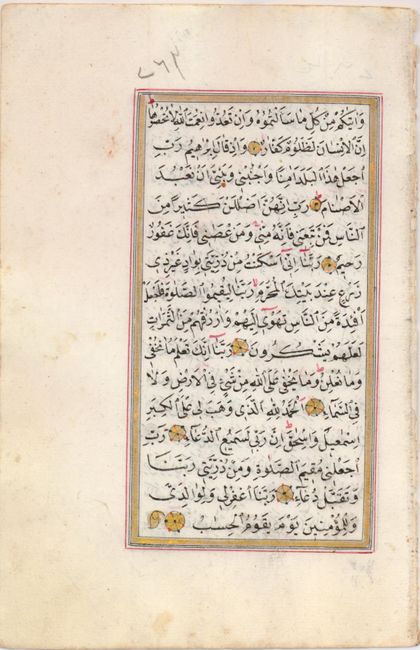 وَاٰتٰيكُمْ مِنْ كُلِّ مَا سَاَلْتُمُوهُ وَاِنْ تَعُدُّوا نِعْمَتَ اللّٰهِ لَا تُحْصُوهَا
اِنَّ الْاِنْسَانَ لَظَلُومٌ كَفَّارٌ وَاِذْ قَالَ اِبْرٰهِيمُ رَبِّ
اجْعَلْ هٰذَا الْبَلَدَ اٰمِنًا وَاجْنُبْنِي وَبَنِيَّ اَنْ نَعْبُدَ
الْاَصْنَامَ رَبِّ اِنَّهُنَّ اَضْلَلْنَ كَثِيرًا مِنَ
النَّاسِ فَمَنْ تَبِعَنِي فَاِنَّهُ مِنِّي وَمَنْ عَصَانِي فَاِنَّكَ غَفُورٌ
رَحِيمٌ رَبَّنَا اِنِّي اَسْكَنْتُ مِنْ ذُرِّيَّتِي بِوَادٍ غَيْرِ ذِي
زَرْعٍ عِنْدَ بَيْتِكَ الْمُحَرَّمِ رَبَّنَا لِيُقِيمُوا الصَّلٰوةَ فَاجْعَلْ
اَفْئِدَةً مِنَ النَّاسِ تَهْوِي اِلَيْهِمْ وَارْزُقْهُمْ مِنَ الثَّمَرَاتِ
لَعَلَّهُمْ يَشْكُرُونَ رَبَّنَا اِنَّكَ تَعْلَمُ مَا نُخْفِي
وَمَا نُعْلِنُ وَمَا يَخْفٰى عَلَى اللّٰهِ مِنْ شَيْءٍ فِي الْاَرْضِ وَلَا
فِي السَّمَاءِ اَلْحَمْدُ لِلّٰهِ الَّذِي وَهَبَ لِي عَلَى الْكِبَرِ
اِسْمٰعِيلَ وَاِسْحٰقَ اِنَّ رَبِّي لَسَمِيعُ الدُّعَاءِ رَبِّ
اجْعَلْنِي مُقِيمَ الصَّلٰوةِ وَمِنْ ذُرِّيَّتِي رَبَّنَا
وَتَقَبَّلْ دُعَاءِ رَبَّنَا اغْفِرْ لِي وَلِوَالِدَيَّ
وَلِلْمُؤْمِنِينَ يَوْمَ يَقُومُ الْحِسَابُ